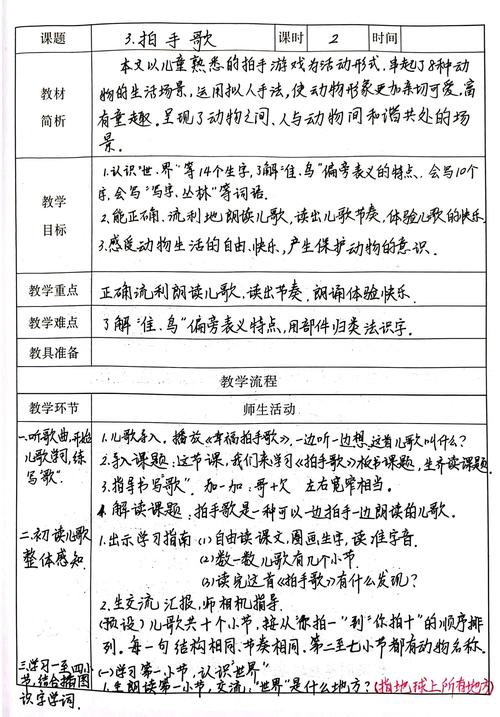 课题 3.拍手歌 课时 2 时间
教材
简析
本文以儿童熟悉的拍手游戏为活动形式,串起了8种动
物的生活场景,运用拟人手法,使动物形象更加亲切可爱,富
有童趣。呈现了动物之间、人与动物间和谐共处的场
景.
教学
目标
1.认识“世、界”等14个生字,了解“隹、鸟”偏旁表义的特点.会写10个
字,会写“写字、丛林”等词语.
2.能正确、流利地朗读儿歌,读出儿歌节奏,体验儿歌的快乐
3.感受动物生活的自由、快乐,产生保护动物的意识.
教学重点 正确流利朗读儿歌,读出节奏.朗诵体验快乐.
教学难点 了解“隹、鸟”偏旁表义特点,用部件归类法识字.
教具准备
教学流程
教学环节 师生活动
一.听歌曲,开始
儿歌学习,练
写“歌”.
1.儿歌导入,播放《幸福拍手歌》,一边听一边想,这首儿歌叫什么?
2.导入课题:这节课,我们来学习《拍手歌》板书课题,生齐读课题.
3.指导书写“歌”. 加一加:哥+欠 左右宽窄相当.
4.解读课题:拍手歌是一种可以一边拍手一边朗读的儿歌.
二.初读儿歌
整体感知.
1.出示学习指南 (1)自由读课文,圈画生字,读准字音.
(2)数一数儿歌有几个小节.
(3)读完这首《拍手歌》有什么发现?
2.生交流汇报,师相机指导.
(预设)儿歌共十个小节,按从“你拍一”到“你拍十”的顺序排
列.每一句结构相同、节奏相同.第二至七小节都有动物名称.
三.学习一至四小
节,结合插图
识字学词.
(一)学习第一小节,认识“世界”
1.生朗读第一小节,交流:“世界”是什么地方?(指地球上所有地方)